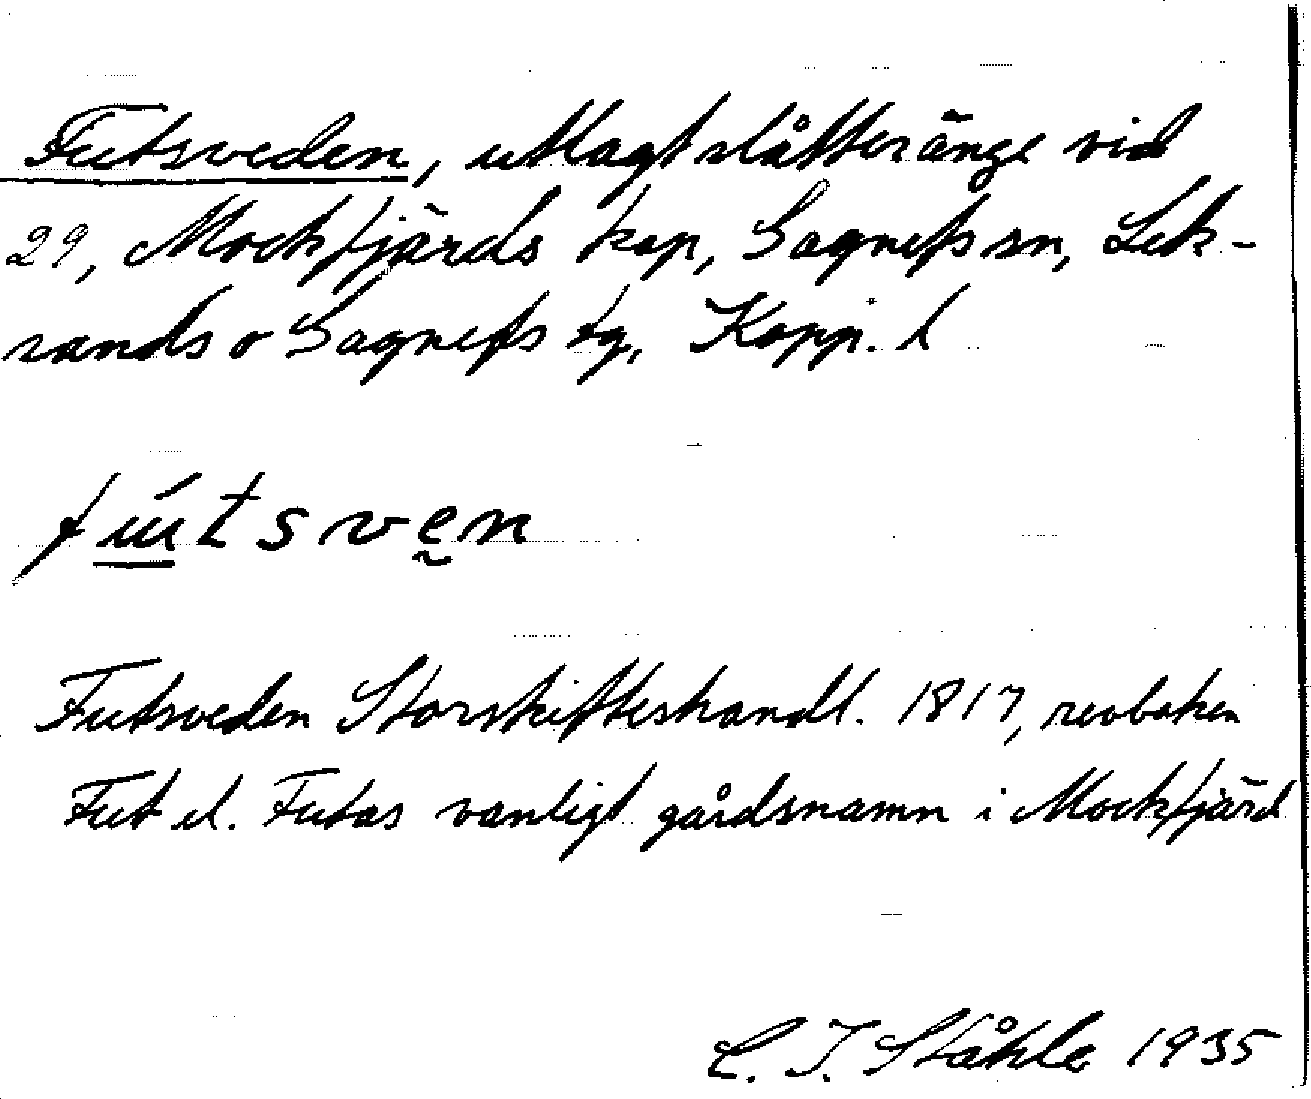 Futsveden, utlagt slåtteränge vid
29, Mockfjärds kap, Gagnefs sn, Lek-
sands o Gagnefs tg, Kopp. l
fútsven
Futsveden Storskifteshandl. 1817, revboken
Fut el. Futas vanligt gårdsnamn i Mockfjärd
C. I. Ståhle 1935